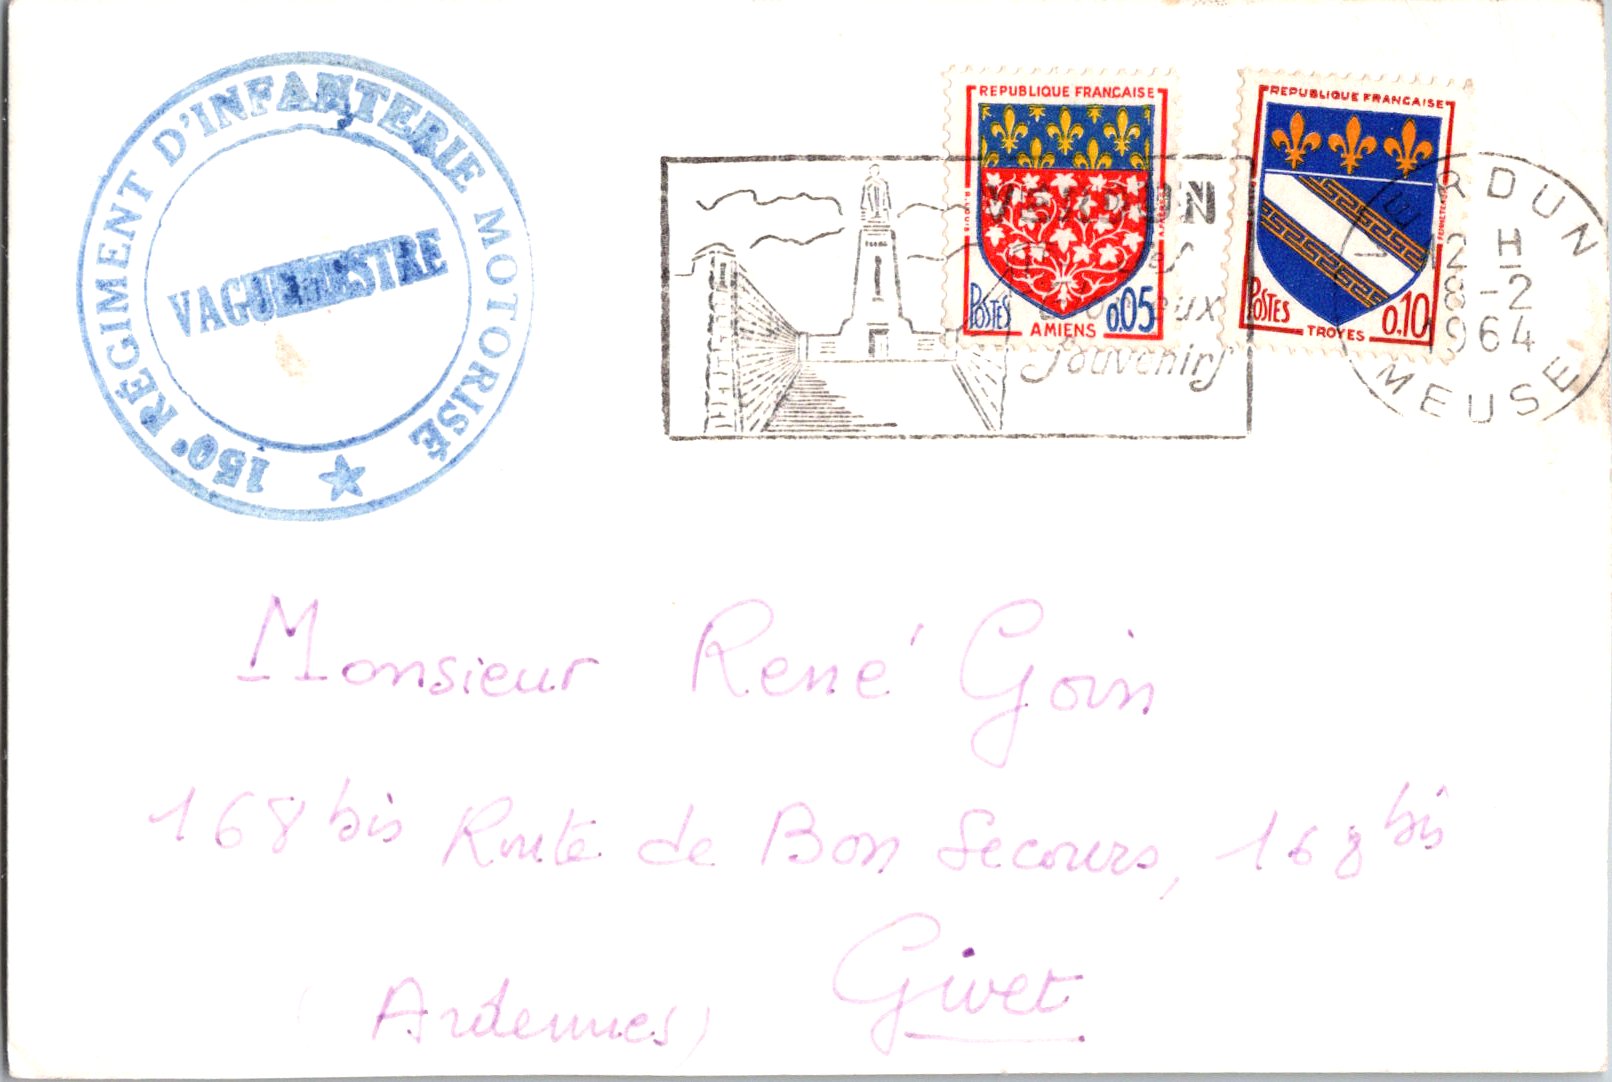 150e RÉGIMENT D'INFANTERIE MOTORISÉ
VAGUEMESTRE
REPUBLIQUE FRANCAISE
POSTES
0,05
AMIENS
REPUBLIQUE FRANCAISE
POSTES
0,10
TROYES
VERDUN
Souvenirs
VERDUN
12 H
8-2
1964
MEUSE
Monsieur René Goin
168 bis Route de Bon Secours, 168 bis
Givet
(Ardennes)